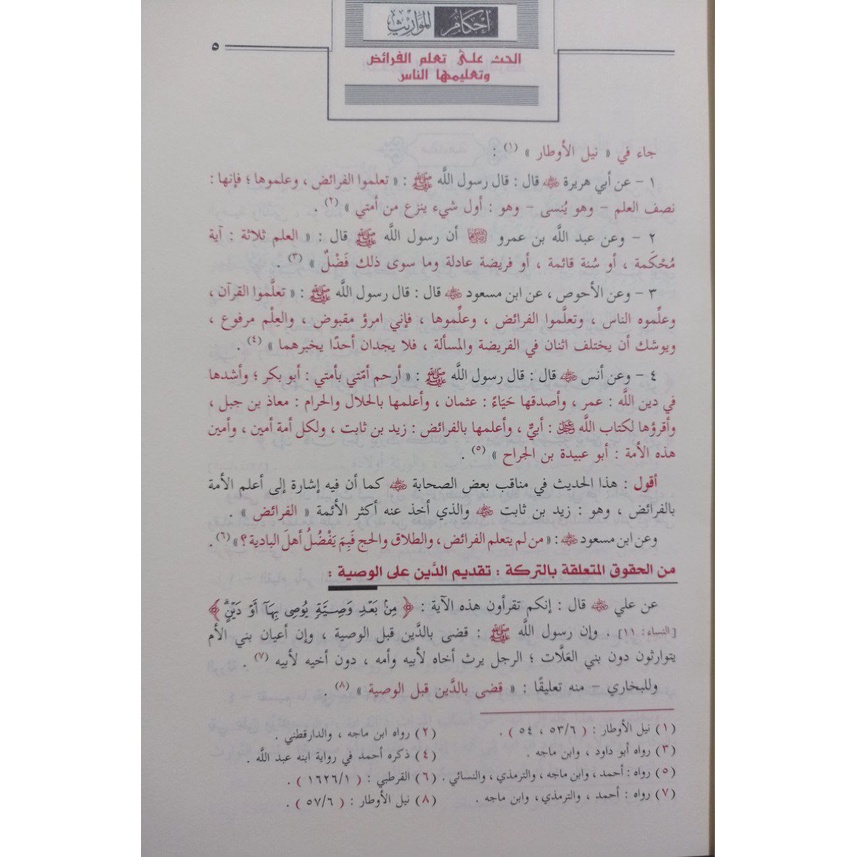 أحكام المواريث
٥
الحث على تعلم الفرائض
وتعليمها الناس
جاء في « نيل الأوطار » (١) :
١ - عن أبي هريرة رضي الله عنه قال : قال رسول اللَّه ﷺ : « تعلموا الفرائض ، وعلموها ؛ فإنها :
نصف العلم - وهو يُنسى - وهو : أول شيء ينزع من أمتي » (٢) .
٢ - وعن عبد اللَّه بن عمرو رضي الله عنهما أن رسول اللَّه ﷺ قال : « العلم ثلاثة : آية
مُحْكَمة ، أو سُنة قائمة ، أو فريضة عادلة وما سوى ذلك فَضْلٌ » (٣) .
٣ - وعن الأحوص ، عن ابن مسعود رضي الله عنه قال : قال رسول اللَّه ﷺ : « تعلَّموا القرآن ،
وعلِّموه الناس ، وتعلَّموا الفرائض ، وعلِّموها ، فإني امرؤ مقبوض ، والعِلْم مرفوع ،
ويوشك أن يختلف اثنان في الفريضة والمسألة ، فلا يجدان أحدًا يخبرهما » (٤) .
٤ - وعن أنس رضي الله عنه قال : قال رسول اللَّه ﷺ : « أرحم أمّتي بأمتي : أبو بكر ؛ وأشدها
في دين اللَّه : عمر ، وأصدقها حَيَاءً : عثمان ، وأعلمها بالحلال والحرام : معاذ بن جبل ،
وأقرؤها لكتاب اللَّه عز وجل : أبيٌّ ، وأعلمها بالفرائض : زيد بن ثابت ، ولكل أمة أمين ، وأمين
هذه الأمة : أبو عبيدة بن الجراح » (٥) .
أقول : هذا الحديث في مناقب بعض الصحابة رضي الله عنهم كما أن فيه إشارة إلى أعلم الأمة
بالفرائض ، وهو : زيد بن ثابت رضي الله عنه والذي أخذ عنه أكثر الأئمة « الفرائض » .
وعن ابن مسعود رضي الله عنه : « من لم يتعلم الفرائض ، والطلاق والحج فَبِمَ يَفْضُلُ أهلَ البادية ؟ » (٦) .
من الحقوق المتعلقة بالتركة : تقديم الدَّين على الوصية :
عن علي رضي الله عنه قال : إنكم تقرأون هذه الآية : ﴿ مِنْ بَعْدِ وَصِيَّةٍ يُوصِى بِهَآ أَوْ دَيْنٍ ﴾
[النساء: ١١] . وإن رسول اللَّه ﷺ : قضى بالدَّين قبل الوصية ، وإن أعيان بني الأم
يتوارثون دون بني العَلَّات ؛ الرجل يرث أخاه لأبيه وأمه ، دون أخيه لأبيه (٧) .
وللبخاري - منه تعليقًا : « قضى بالدَّين قبل الوصية » (٨) .
(١) نيل الأوطار : ( ٥٣/٦ ، ٥٤ ) . (٢) رواه ابن ماجه ، والدارقطني .
(٣) رواه أبو داود ، وابن ماجه . (٤) ذكره أحمد في رواية ابنه عبد اللَّه .
(٥) رواه : أحمد ، وابن ماجه ، والترمذي ، والنسائي . (٦) القرطبي : ( ١٦٢٦/١ ) .
(٧) رواه : أحمد ، والترمذي ، وابن ماجه . (٨) نيل الأوطار : ( ٥٧/٦ ) .